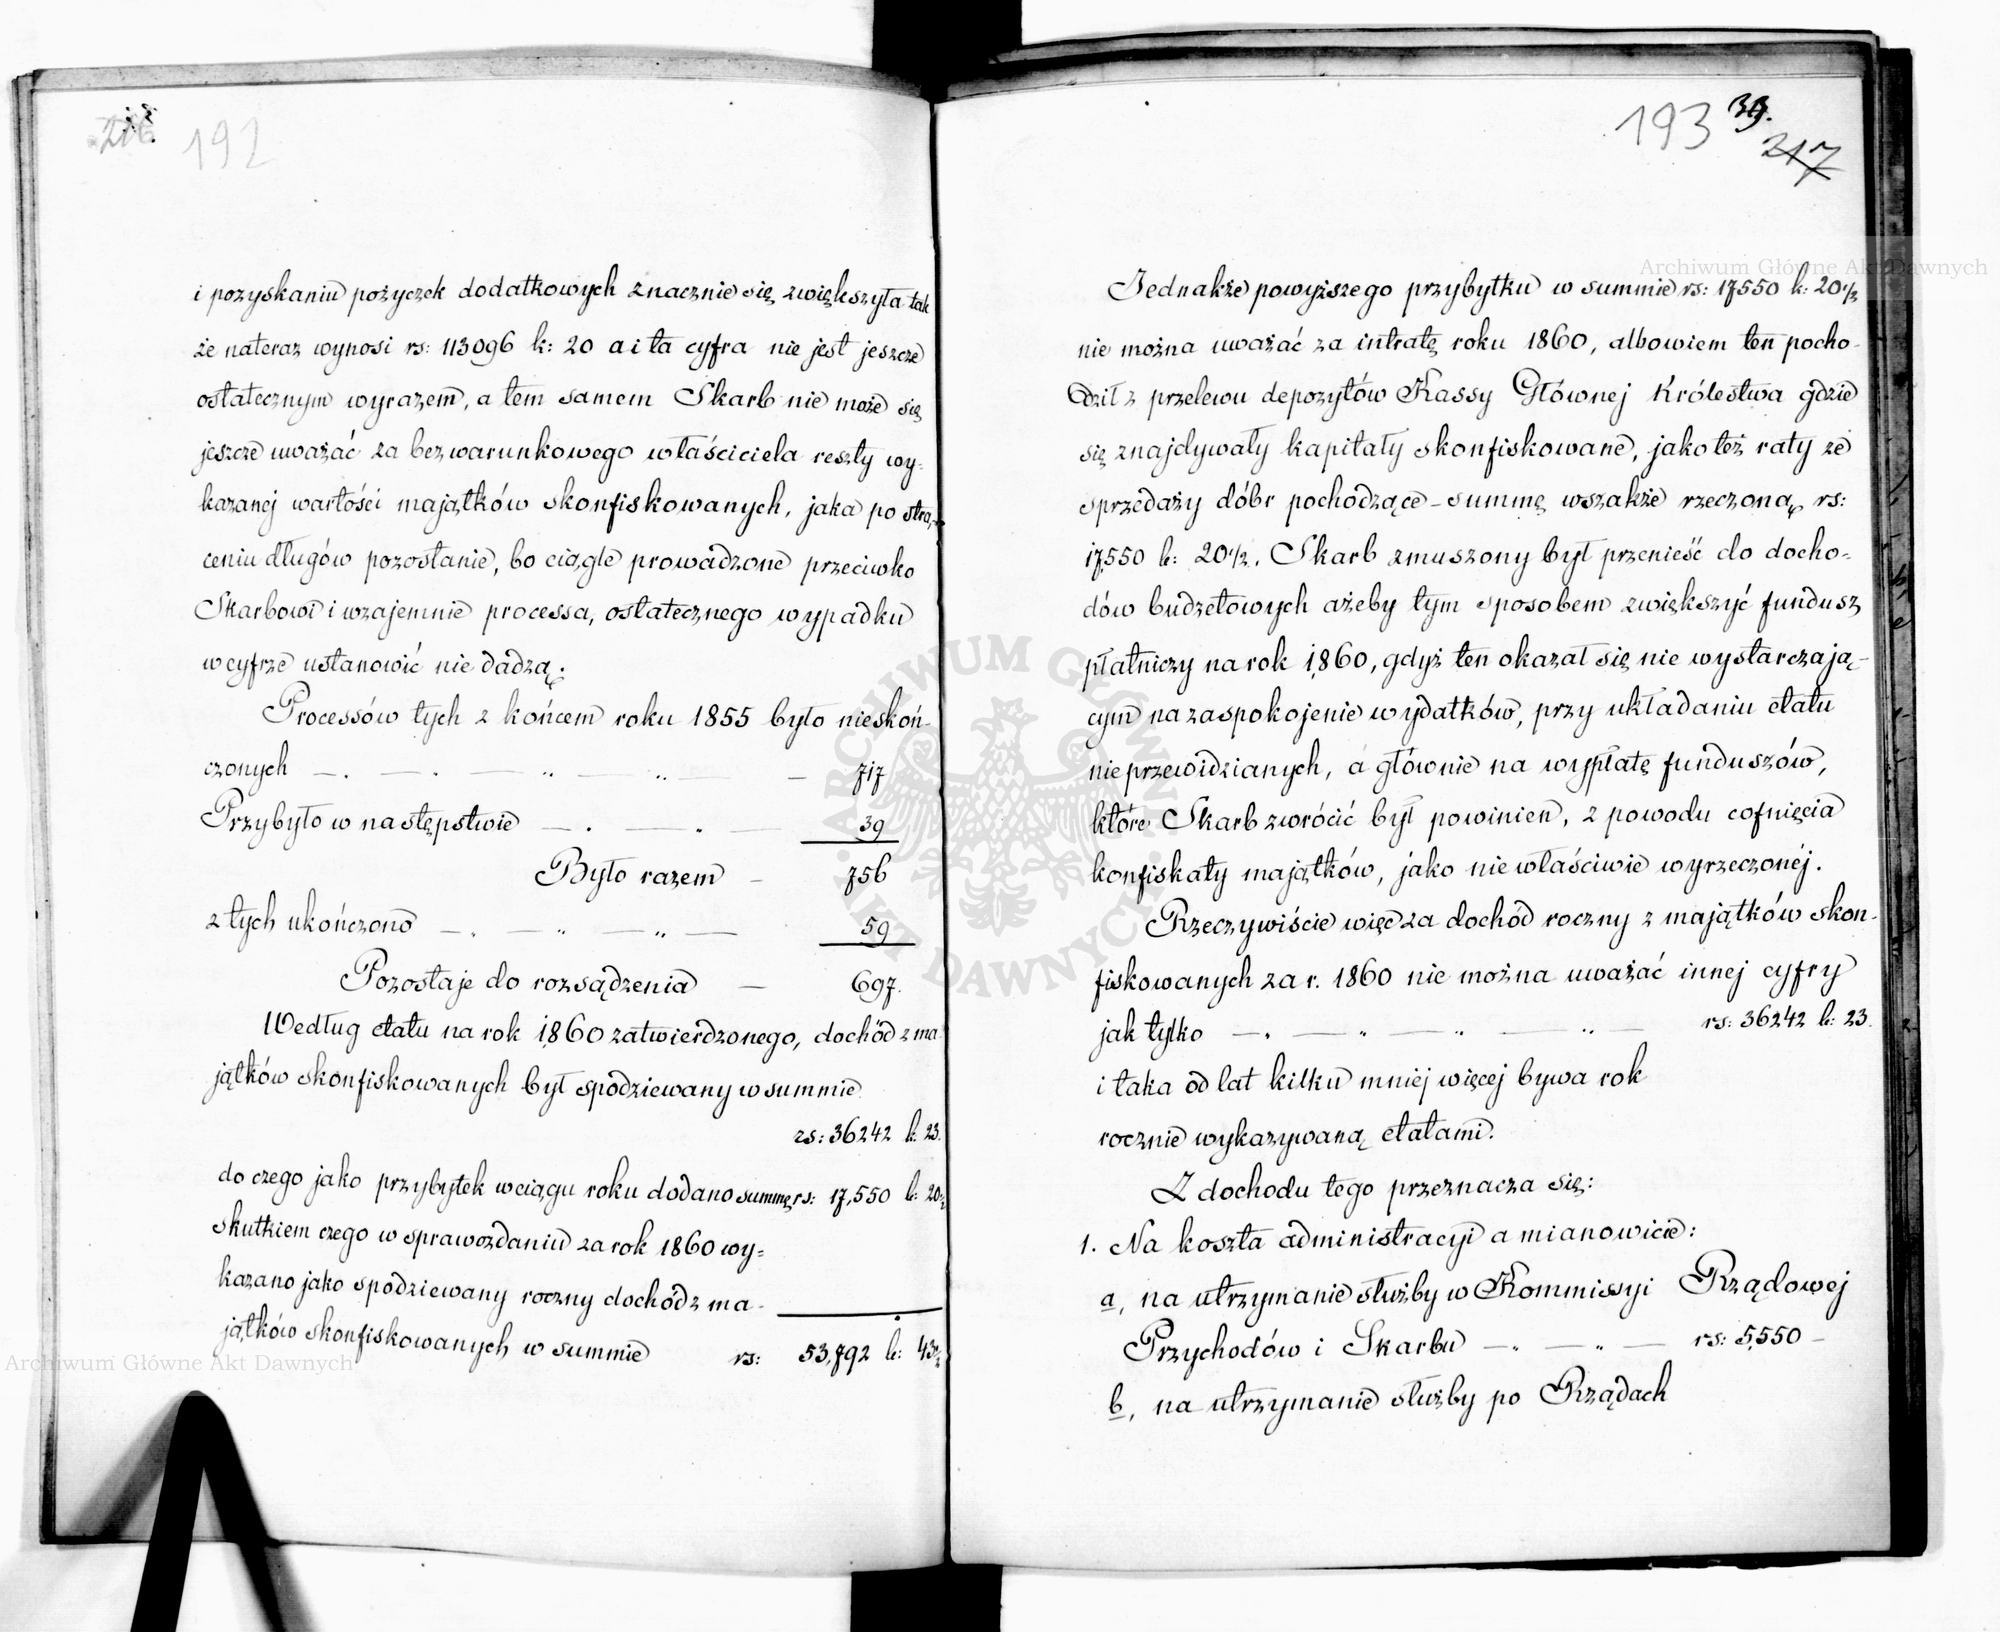 192
i pozyskaniu pożyczek dodatkowych znacznie się zwiększyła tak
że nateraz wynosi rs: 113096 k: 20 a i ta cyfra nie jest jeszcze
ostatecznym wyrazem, a tem samem Skarb nie może się
jeszcze uważać za bezwarunkowego właściciela reszty wy-
kazanej wartości majątków skonfiskowanych, jaka po strą-
ceniu długów pozostanie, bo ciągle prowadzone przeciwko
Skarbowi i wzajemnie processa, ostatecznego wypadku
w cyfrze ustanowić nie dadzą.
Processów tych z końcem roku 1855 było nieskoń-
czonych — . — . — " — " — — 717
Przybyło w następstwie — . — " — 39
Było razem — 756
z tych ukończono — . — " — " — 59
Pozostaje do rozsądzenia — 697.
Według etatu na rok 1860 zatwierdzonego, dochód z ma
jątków skonfiskowanych był spodziewany w summie
rs: 36242 k: 23.
do czego jako przybytek w ciągu roku dodano summę rs: 17,550 k: 20½
skutkiem czego w sprawozdaniu za rok 1860 wy=
kazano jako spodziewany roczny dochód z ma-
jątków skonfiskowanych w summie rs: 53,792 k: 43½
193 39.
217
Jednakże powyższego przybytku w summie rs: 17550 k: 20½
nie można uważać za intratę roku 1860, albowiem ten pocho-
dził z przelewu depozytów Kassy Głównej Królestwa gdzie
się znajdywały kapitały skonfiskowane, jako też raty ze
sprzedaży dóbr pochodzące – summę wszakże rzeczoną rs:
17,550 k: 20½. Skarb zmuszony był przenieść do docho-
dów budżetowych ażeby tym sposobem zwiększyć fundusz
płatniczy na rok 1860, gdyż ten okazał się nie wystarczają-
cym na zaspokojenie wydatków, przy układaniu etatu
nieprzewidzianych, a głównie na wypłatę funduszów,
które Skarb zwrócić był powinien, z powodu cofnięcia
konfiskaty majątków, jako niewłaściwie wyrzeczonéj.
Rzeczywiście więc za dochód roczny z majątków skon-
fiskowanych za r. 1860 nie można uważać innej cyfry
jak tylko — . — " — " — " — rs: 36242 k: 23.
i taka od lat kilku mniej więcej bywa rok
rocznie wykazywaną etatami.
Z dochodu tego przeznacza się:
1. Na koszta administracyi a mianowicie:
a, na utrzymanie służby w Kommissyi Rządowej
Przychodów i Skarbu — . — " — rs: 5,550 –
b, na utrzymanie służby po Rządach
Archiwum Główne Akt Dawnych
Archiwum Główne Akt Dawnych
ARCHIWUM GŁÓWNE · AKT DAWNYCH ·